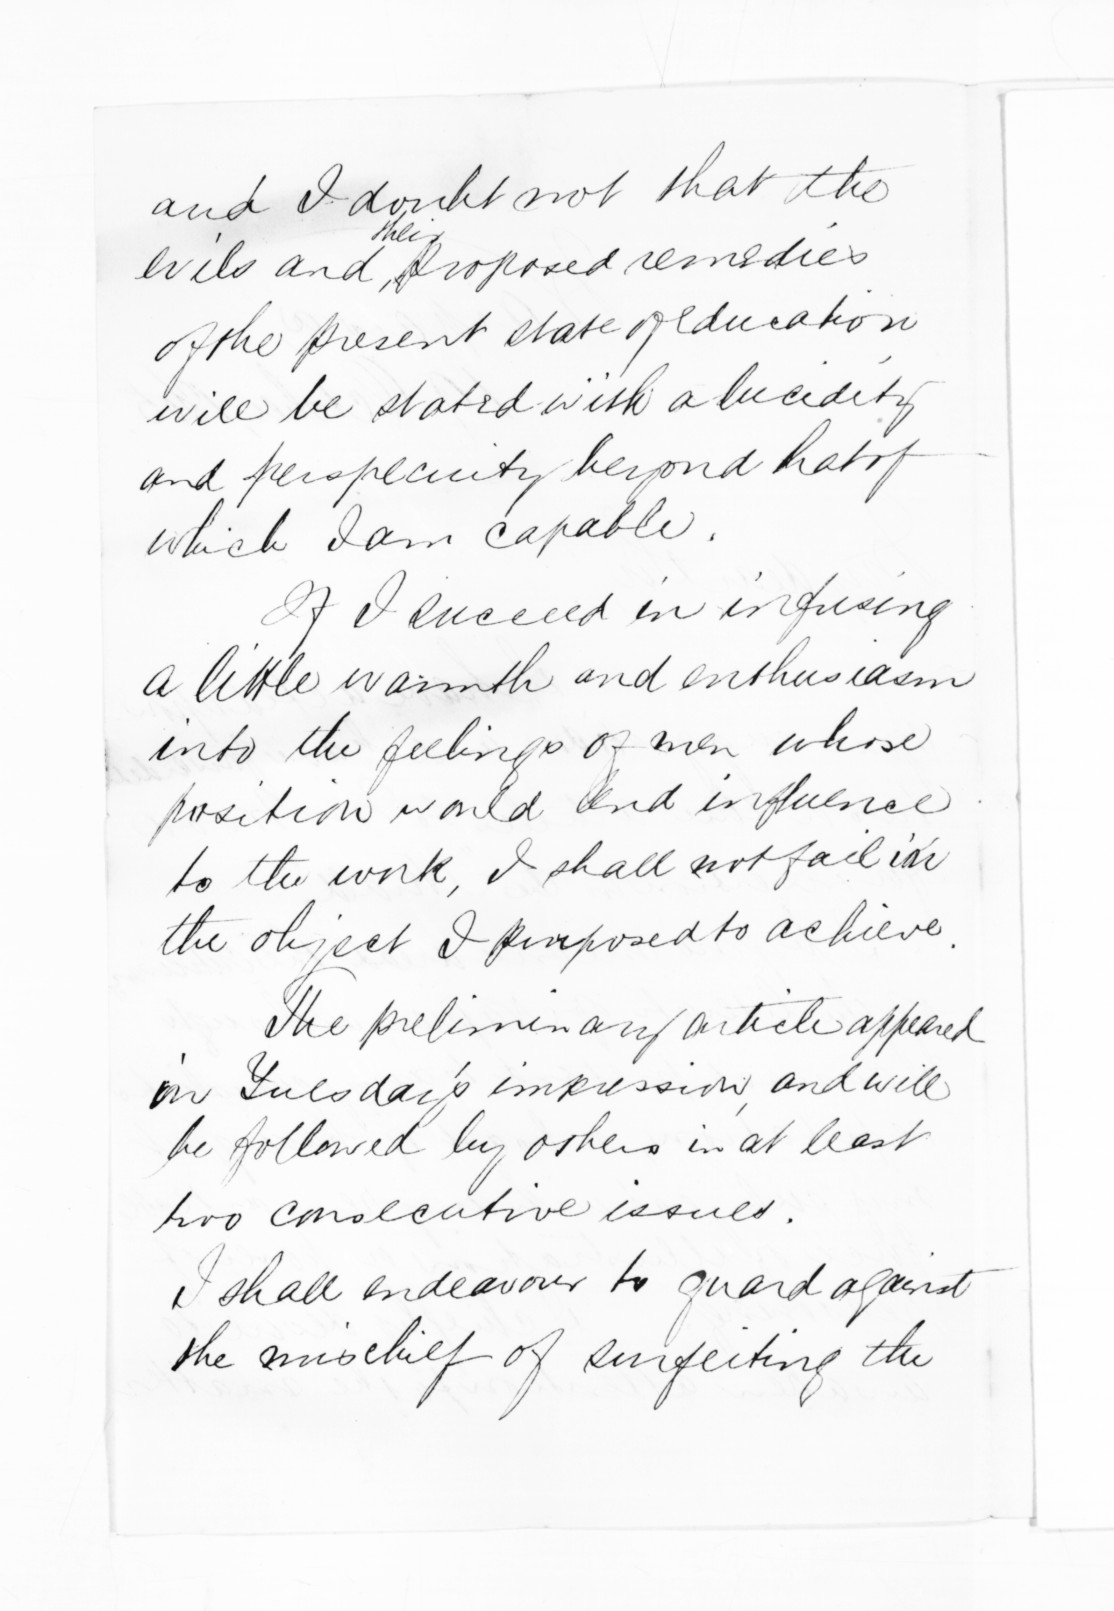 and I doubt not that the
their
evils and, proposed remedies
of the present state of education,
will be stated with a lucidity
and perspecuity beyond that of
which I am capable.
If I succeed in infusing
a little warmth and enthusiasm
into the feelings of men whose
position would lend influence
to the work, I shall not fail in
the object I purposed to achieve.
The preliminary article appeared
in Tuesday's impression, and will
be followed by others in at least
two consecutive issues.
I shall endeavour to guard against
the mischief of surfeiting the